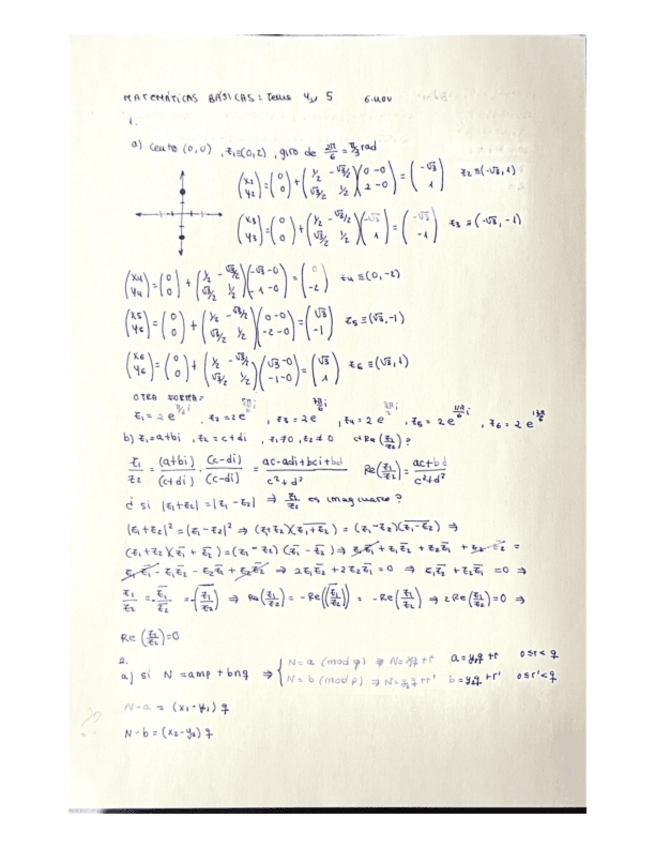 MATEMÁTICAS BÁSICAS: Temas 4 y 5 6-NOV
1.
a) Centro (0,0), z₁≡(0,2), giro de 2π/6 = π/3 rad
(x₂ y₂) = (0 0) + (1/2 -√3/2 √3/2 1/2)(0-0 2-0) = (-√3 1) z₂≡(-√3,1)
(x₃ y₃) = (0 0) + (1/2 -√3/2 √3/2 1/2)(-√3 1) = (-√3 -1) z₃≡(-√3,-1)
(x₄ y₄) = (0 0) + (1/2 -√3/2 √3/2 1/2)(-√3-0 -1-0) = (0 -2) z₄≡(0,-2)
(x₅ y₅) = (0 0) + (1/2 -√3/2 √3/2 1/2)(0-0 -2-0) = (√3 -1) z₅≡(√3,-1)
(x₆ y₆) = (0 0) + (1/2 -√3/2 √3/2 1/2)(√3-0 -1-0) = (√3 1) z₆≡(√3,1)
OTRA FORMA:
z₁=2e^(π/2 i), z₂=2e, z₃=2e, z₄=2e, z₅=2e^(11π/6 i), z₆=2e^(13π/6)
b) z₁=a+bi, z₂=c+di, z₁≠0, z₂≠0 ¿Re(z₁/z₂)?
z₁/z₂ = (a+bi)/(c+di) · (c-di)/(c-di) = ac-adi+bci+bd/c²+d² Re(z₁/z₂) = ac+bd/c²+d²
¿ si |z₁+z₂|=|z₁-z₂| ⇒ z₁/z₂ es imaginario?
|z₁+z₂|²=|z₁-z₂|² ⇒ (z₁+z₂)(z̅₁+z̅₂) = (z₁-z₂)(z̅₁-z̅₂) ⇒
(z₁+z₂)(z̅₁+z̅₂)=(z₁-z₂)(z̅₁-z̅₂) ⇒ z₁z̅₁+z₁z̅₂+z₂z̅₁+z₂z̅₂ =
z₁z̅₁-z₁z̅₂-z₂z̅₁+z₂z̅₂ ⇒ 2z₁z̅₂+2z₂z̅₁=0 ⇒ z₁z̅₂+z₂z̅₁=0 ⇒
z₁/z₂ = -z̅₁/z̅₂ = -(z̅₁/z̅₂) ⇒ Re(z₁/z₂) = -Re(z̅₁/z̅₂) = -Re(z₁/z₂) ⇒ 2Re(z₁/z₂)=0 ⇒
Re(z₁/z₂)=0
2.
a) si N=amp+bnq ⇒ { N≡a (mod q) ⇒ N=x₁q+r a=y₁q+r 0≤r<q
N≡b (mod p) ⇒ N=x₂q+r' b=y₂q+r' 0≤r'<q
N-a = (x₁-y₁) q
N-b = (x₂-y₂) q